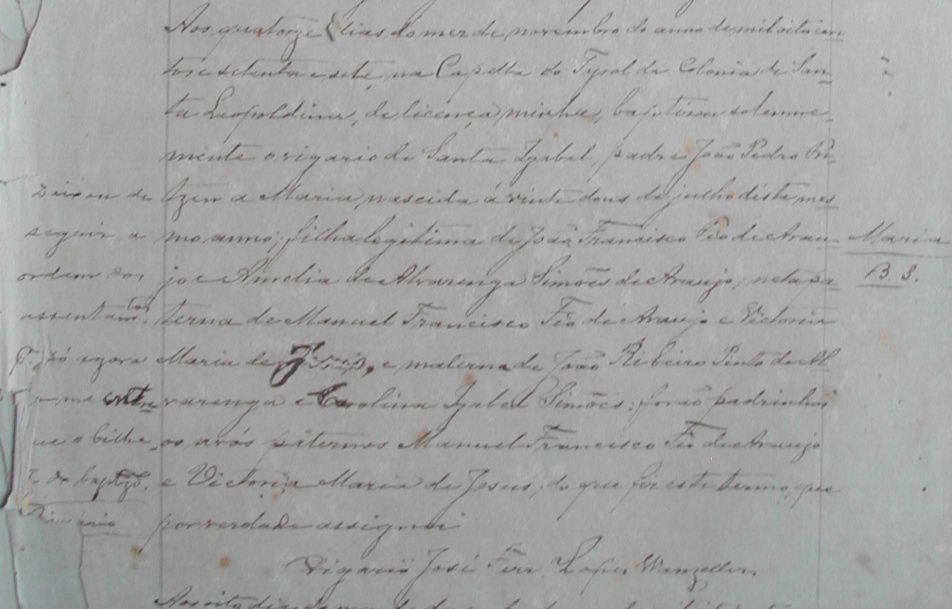 Aos quatorze dias do mez de novembro do anno de mil oitocen-
tos e setenta e sete, na Capella do Tyrol da Colonia de San-
ta Leopoldina, de licença minha, baptizou solemne-
mente o vigario de Santa Izabel, padre João Pedro
a Maria, nascida á vinte dous de julho deste mes-
mo anno; filha legitima de João Francisco Pio de Arau-
jo e Amelia de Alvarenga Simões de Araujo; neta pa-
terna de Manuel Francisco Fio de Araujo e Victoria
Maria de Jesus, e materna de João Ribeiro Pinto de Al-
varenga e Carolina Izabel Simões: forão padrinhos
os avós paternos Manuel Francisco Fio de Araujo
e Victoria Maria de Jesus; do que fiz este termo, que
por verdade assignei
Vigario José Ferr. Lopes Wanzeller.
Aos oito dias
Deixou de
seguir a
ordem dos
assentamtos.
só agora
me entre
o bilhe
de baptzo.
Maria
B. S.